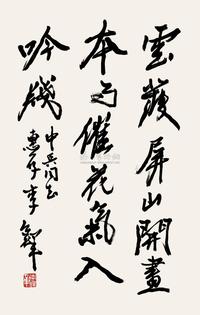 雲嶺屏山開畫
本雨催花氣入
吟牋
中兵同志
惠存 李鐸